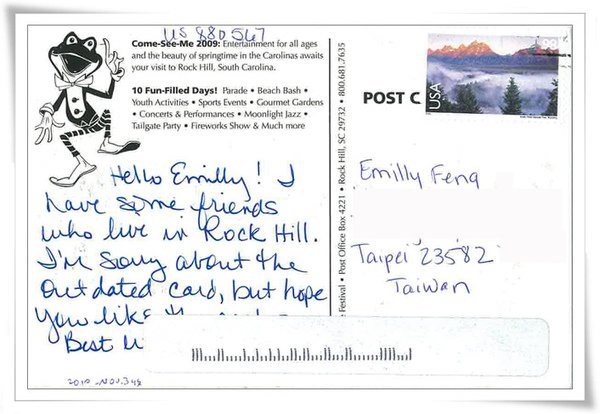 US 880567
Come-See-Me 2009: Entertainment for all ages
and the beauty of springtime in the Carolinas awaits
your visit to Rock Hill, South Carolina.
10 Fun-Filled Days! Parade • Beach Bash •
Youth Activities • Sports Events • Gourmet Gardens
• Concerts & Performances • Moonlight Jazz •
Tailgate Party • Fireworks Show & Much more
Hello Emilly! I
have some friends
who live in Rock Hill.
I'm sorry about the
outdated card, but hope
you like
Best
2010 -NOV.348
e Festival • Post Office Box 4221 • Rock Hill, SC 29732 • 800.681.7635
POST C
USA
98
Emilly Feng
Taipei 23582
Taiwan